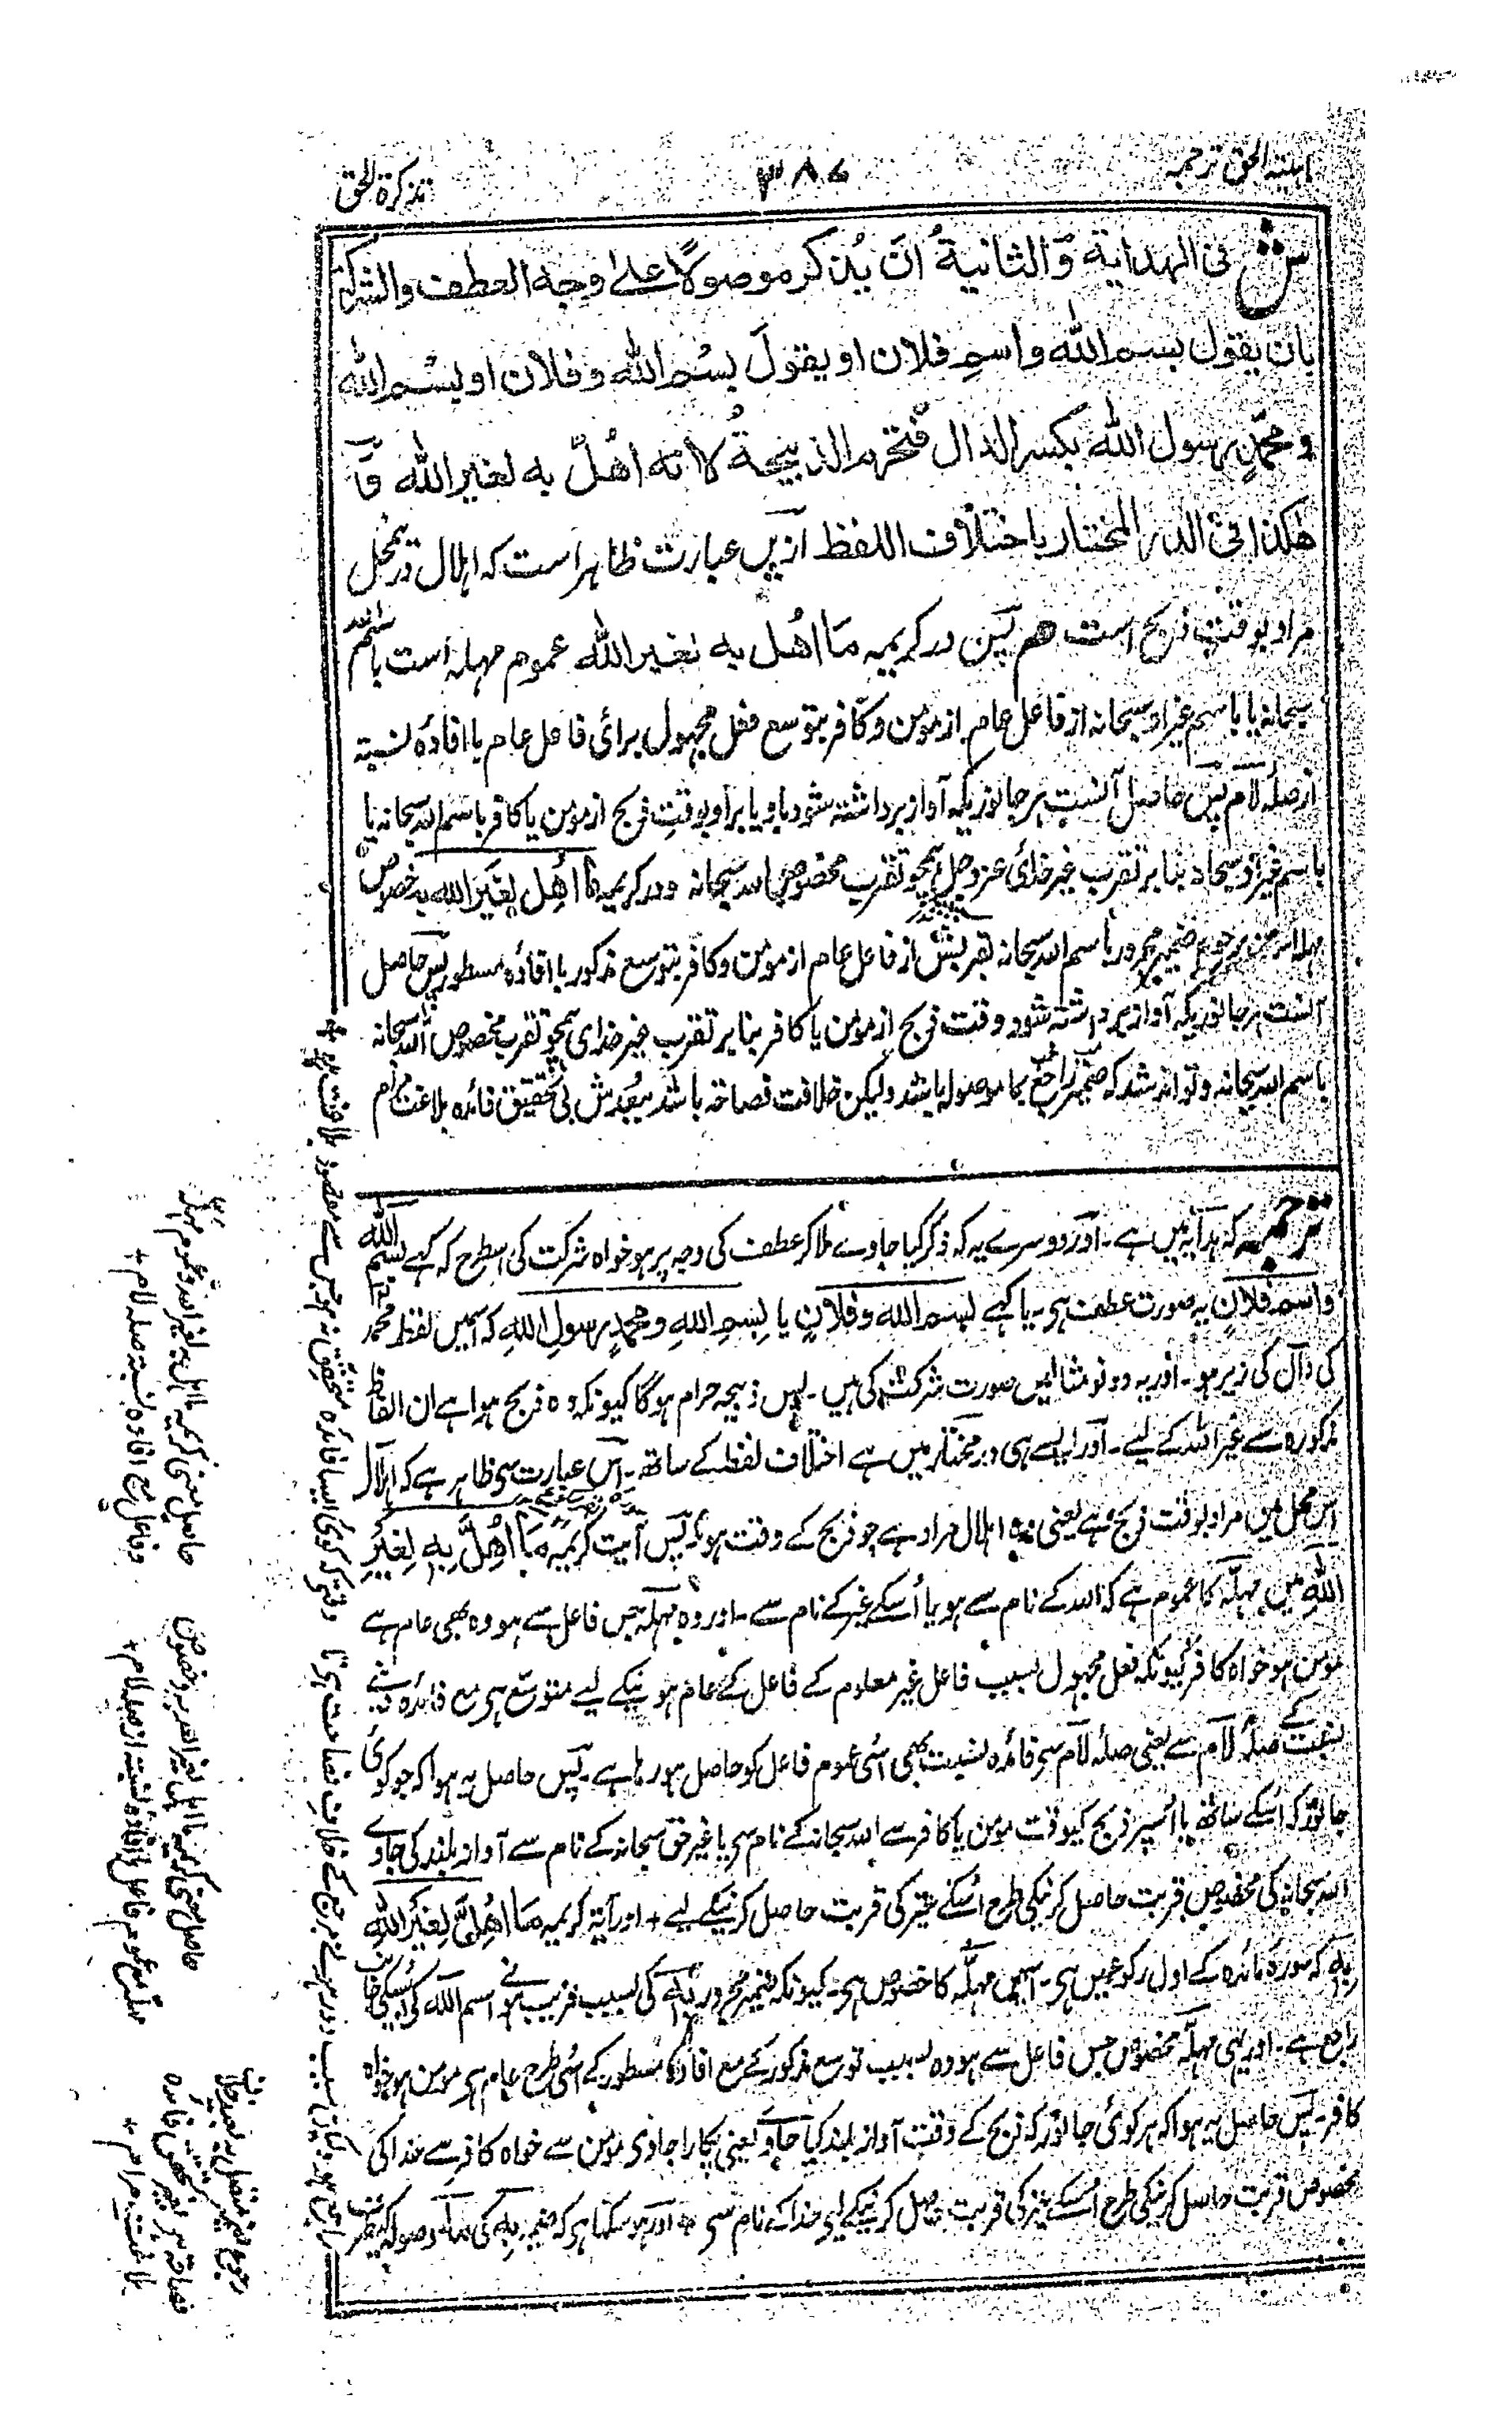 آئینۃ الحق ترجمہ
۳۸۷
تذکرۃ الحق
ش فی الہدایۃ وَالثانیۃُ انَ یُذکر موصولًا علٰے وجہ العطف والشرکۃ
بان یقول بسم اللہ واسمِ فلان او یقولَ بسم اللہ وفلان او بسم اللہ
ومحمدٍ رسول اللہ بکسر الدال فتحرم الذبیحۃُ لانہ اُھلّ بہ لغیر اللہ وَ
ھٰکذا فی الدر المختار باختلاف اللفظ ازیں عبارت ظاہر است کہ اہلال در محل
مراد بوقت ذبح است ھم پس در کریمہ مَا اھُل بہ لغیر اللہ عموم مہلہ است باسم اللہ
سبحانہ یا باسم غیر او سبحانہ از فاعل عام از مومن و کافر بتوسع فعل مجہول برائ فاعل عام با افادۂ نسبۃ
از صلۂ لام پس حاصل آنست ہر جانوریکہ آواز برداشتہ شود باو یا براو بوقت ذبح از مومن یا کافر باسم اللہ سبحانہ یا
باسم غیر او سبحانہ بنا بر تقرب غیر خدائ عز و جل ہمچو تقرب مخصوص اللہ سبحانہ ودر کریمہ مَا اُھِل لِغَیر اللہ بہ خصوص
مہلہ است من رجوع ضمیر مجرور باسم اللہ سبحانہ از فاعل عام از مومن و کافر بتوسع مذکور با افادۂ مسطور پس حاصل
آنست ہر جانوریکہ آواز برداشتہ شود وقت ذبح از مومن یا کافر بنا بر تقرب غیر خدای ہمچو تقرب مخصوص اللہ سبحانہ
باسم اللہ سبحانہ وتواند شد کہ ضمیر راجع بما موصولہ باشد ولیکن خلافت فصاحۃ باشد ببُعدش بی تحقیق فائدہ بلاغت مرام
ترجمہ کہ ہدایہ میں ہے۔ اور دوسرے یہ کہ ذکر کیا جاوے ملا کر عطف کی وجہ پر ہو خواہ شرکت کی اسطرح کہ کہے بسم اللہ
واسم فلانٍ یہ صورت عطف ہی۔ یا کہے بسم اللہ وفلانٍ یا بِسمِ اللہِ ومحمدٍ رسولِ اللہِ کہ اسمیں لفظ محمد
کی دال کی زیر ہو۔ اور یہ دونو مثالیں صورت شرکت کی ہیں۔ پس ذبیحہ حرام ہوگا کیونکہ وہ ذبح ہوا ہے ان الفاظ
مذکورہ سے غیر اللہ کے لیے۔ اور ایسے ہی در مختار میں ہے اختلاف لفظ کے ساتھ۔ اس عبارت سی ظاہر ہے کہ اہلال
اس محل میں مراد بوقت ذبح ہے یعنی وہ اہلال مراد ہے جو ذبح کے وقت ہو۔ پس آیت کریمہ مَا اُھِلَّ بِہٖ لِغَیرِ
اللہِ میں مہلہ کا عموم ہے کہ اللہ کے نام سے ہو یا اُسکے غیر کے نام سے۔ اور وہ مہلہ جس فاعل سے ہو وہ بھی عام ہے
مومن ہو خواہ کافر کیونکہ فعل مجہول بسبب فاعل غیر معلوم کے فاعل کے عام ہونیکے لیے متوسع ہی مع فائدہ دینے
نسبت صلۂ لام کے سے یعنی صلہ لام سی فائدہ نسبت بھی اُسی عموم فاعل کو حاصل ہو رہا ہے۔ پس حاصل یہ ہوا کہ جو کوئ
جانور کہ اُسکے ساتھ یا اُسپر ذبح کیوقت مومن یا کافر سے اللہ سبحانہ کے نام سی یا غیر حق سبحانہ کے نام سے آواز بلند کی جاوے
اللہ سبحانہ کی مخصوص قربت حاصل کرنیکی طرح اُسکے غیر کی قربت حاصل کرنیکے لیے + اور آیۃ کریمہ مَا اُھِلَّ لِغَیر اللہ
بِہٖ کہ سورۂ مائدہ کے اول رکوع میں ہی۔ اسمیں مہلہ کا خصوص ہی۔ کیونکہ ضمیر مجرور بہٖ کی بسبب قریب ہونے اسم اللہ کی اُسکی
راجع ہے۔ اور یہی مہلہ مخصوص جس فاعل سے ہو وہ بسبب توسع مذکور کے مع افادۂ مسطور کے اُسی طرح عام ہی مومن ہو خواہ
کافر۔ پس حاصل یہ ہوا کہ ہر کوئی جانور کہ ذبح کے وقت آواز بلند کیا جاوے یعنی پکارا جاوی مومن سے خواہ کافر سے خدا کی
مخصوص قربت حاصل کرنیکی طرح اُسکے غیر کی قربت حاصل کرنیکے لیے خدا کے نام سی + اور ہو سکتا ہی کہ ضمیر بہٖ کی مآ موصولہ کیطرف
راجع ہو ولیکن بسبب دور ہونے مرجع کے خلافِ فصاحت ہوگا وقتیکہ کوئی ایسا فائدہ متحقق نہ ہو جس سے مقصود
حاصل معنی کریمہ ما اہل بہ لغیر اللہ وعموم مہلہ
وفاعل مع افادہ نسبتہ صلہ لام +
حاصل معنی کریمہ ما اہل لغیر اللہ بہ وخصوص
مہلہ مع عموم فاعل با افادۂ نسبتہ از صلہ لام +
فصاحۃ بی تحقق فائدہ
بلاغت مرام +